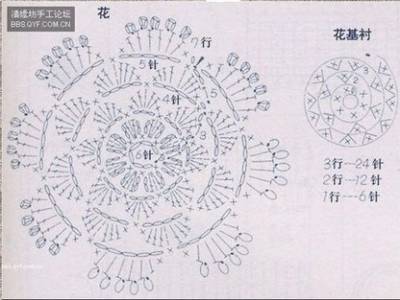 滇缘坊手工论坛
BBS.QYF.COM.CN
花
7行
5针
4针
5
3
6针
花基衬
3
2
3行---24针
2行---12针
1行---6针